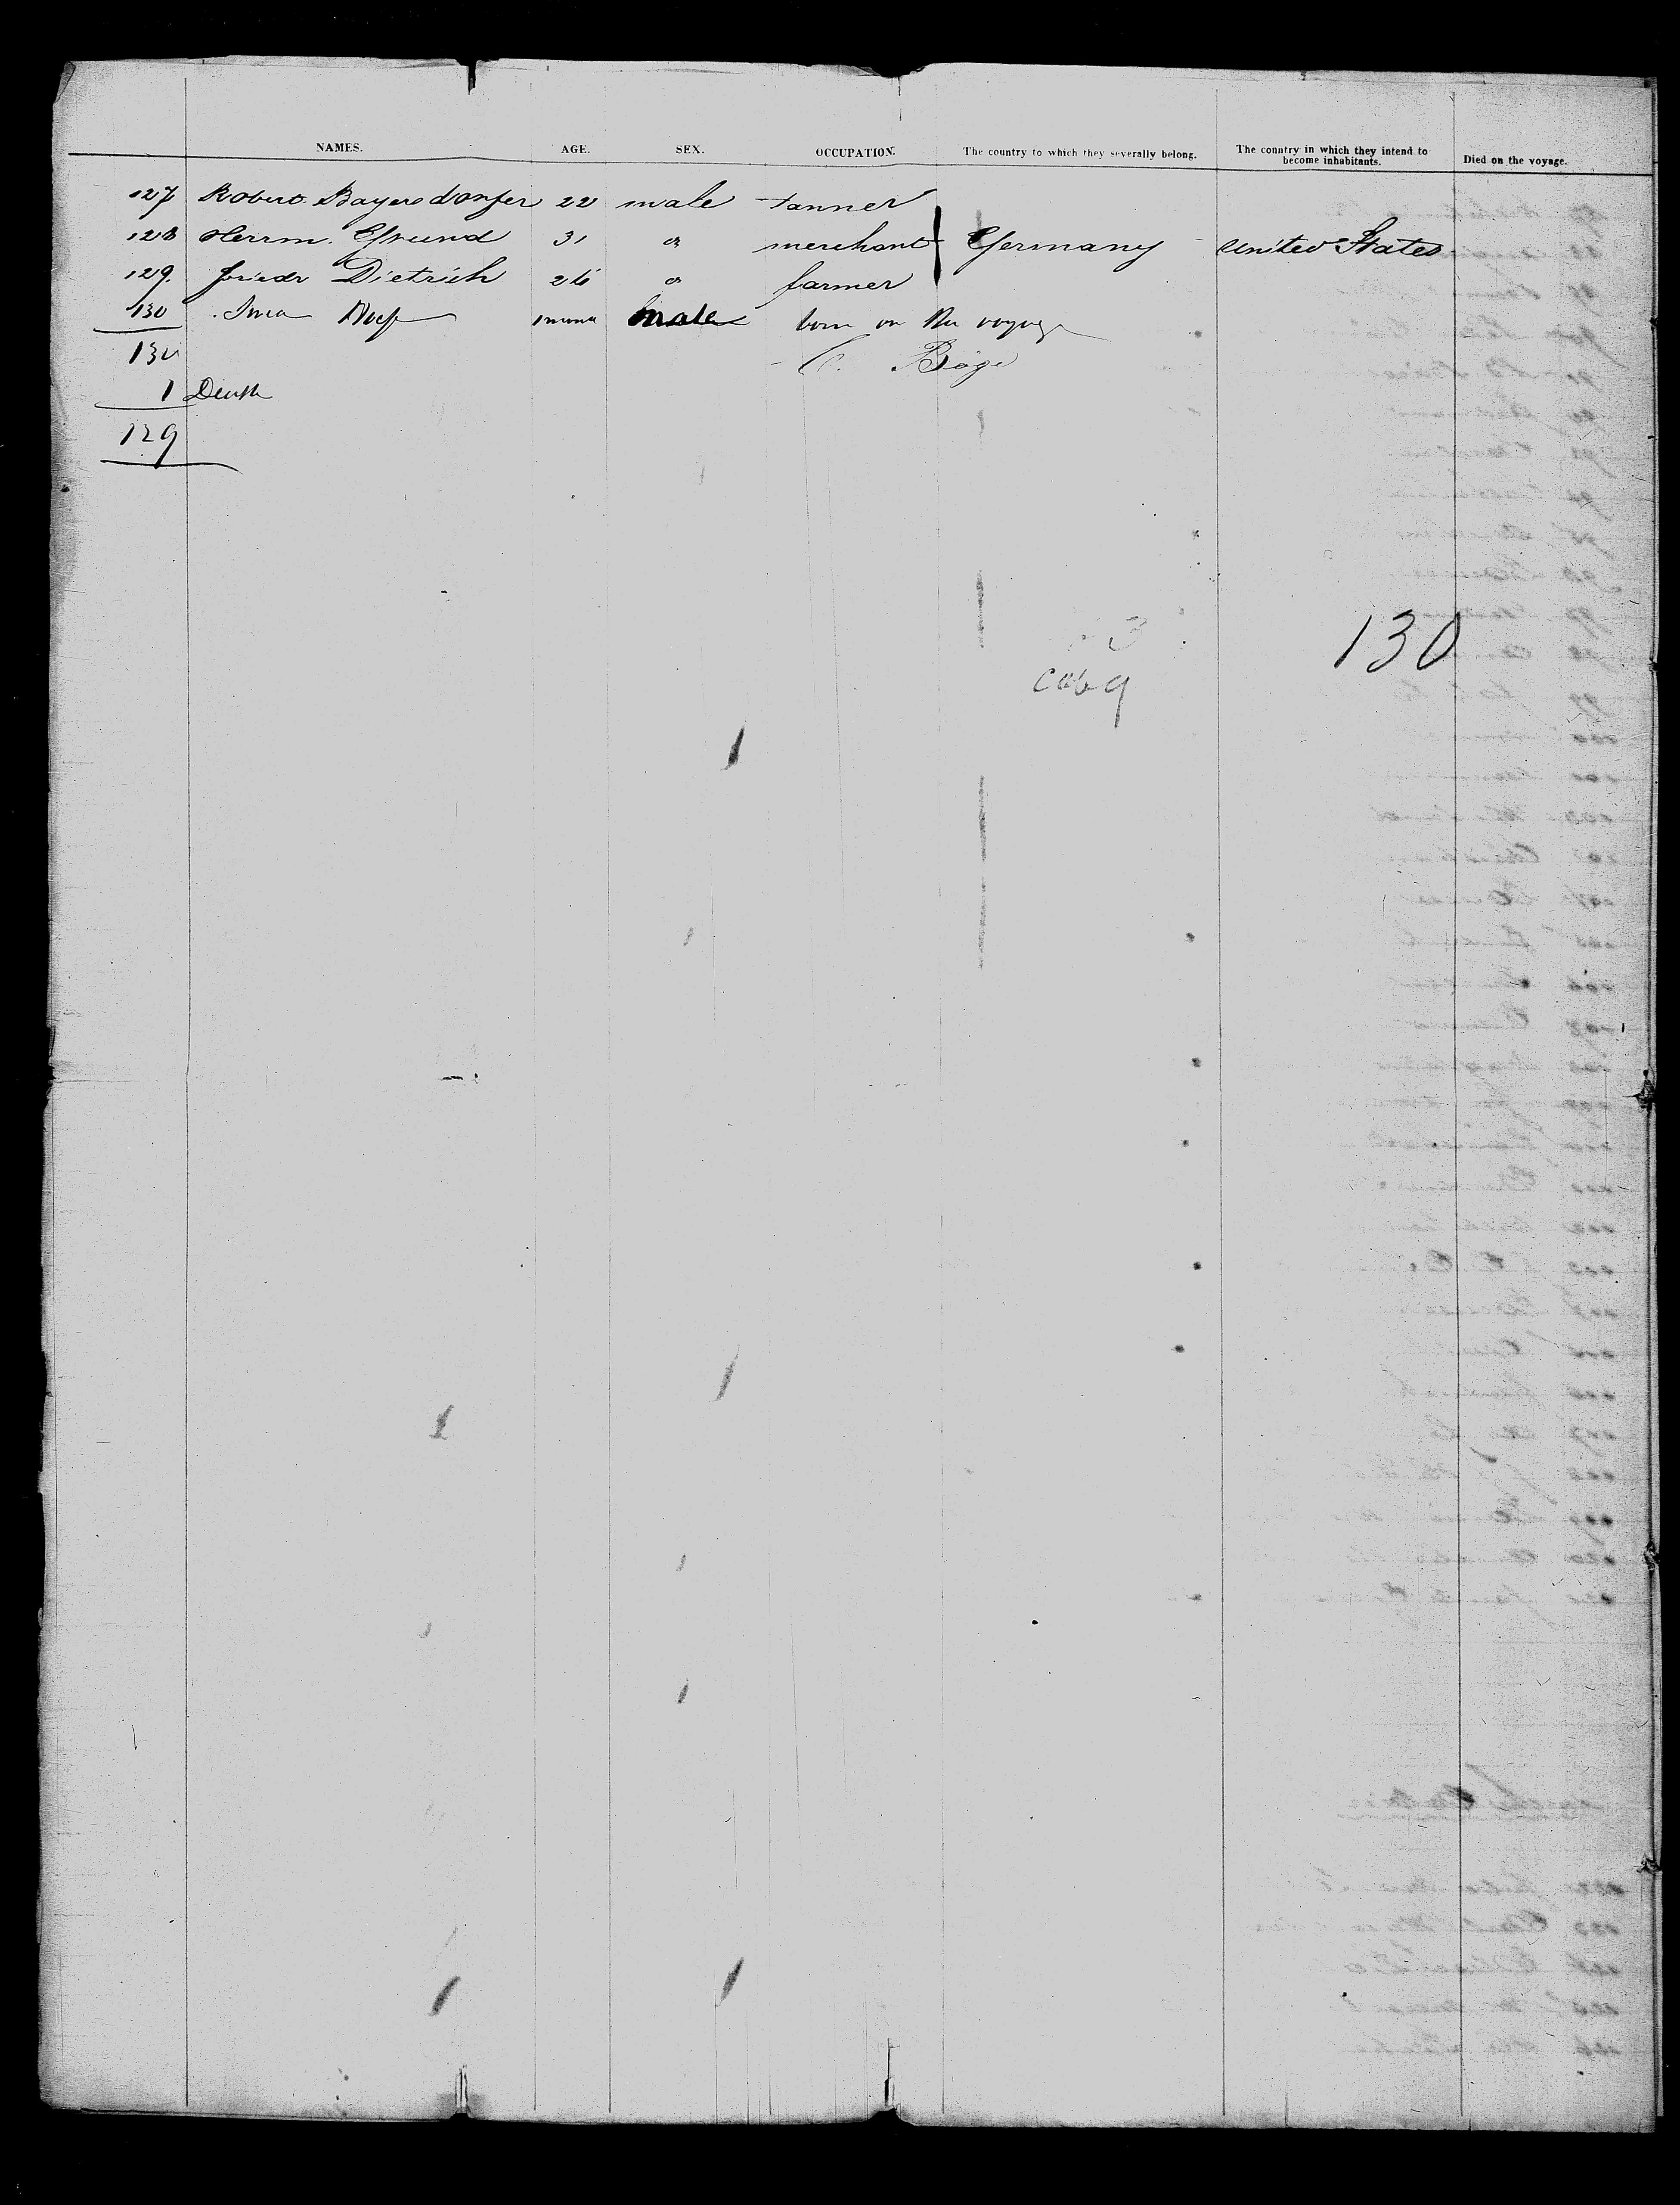 NAMES. AGE. SEX. OCCUPATION. The country to which they severally belong. The country in which they intend to become inhabitants. Died on the voyage.
127 Robert Bayersdorfer 22 male tanner
128 Herrm. Grund 31 " merchant Germany United States
129. Friedr Dietrich 26 " farmer
130 male born on the voyage
130 C. Böge
1 Death
129
130